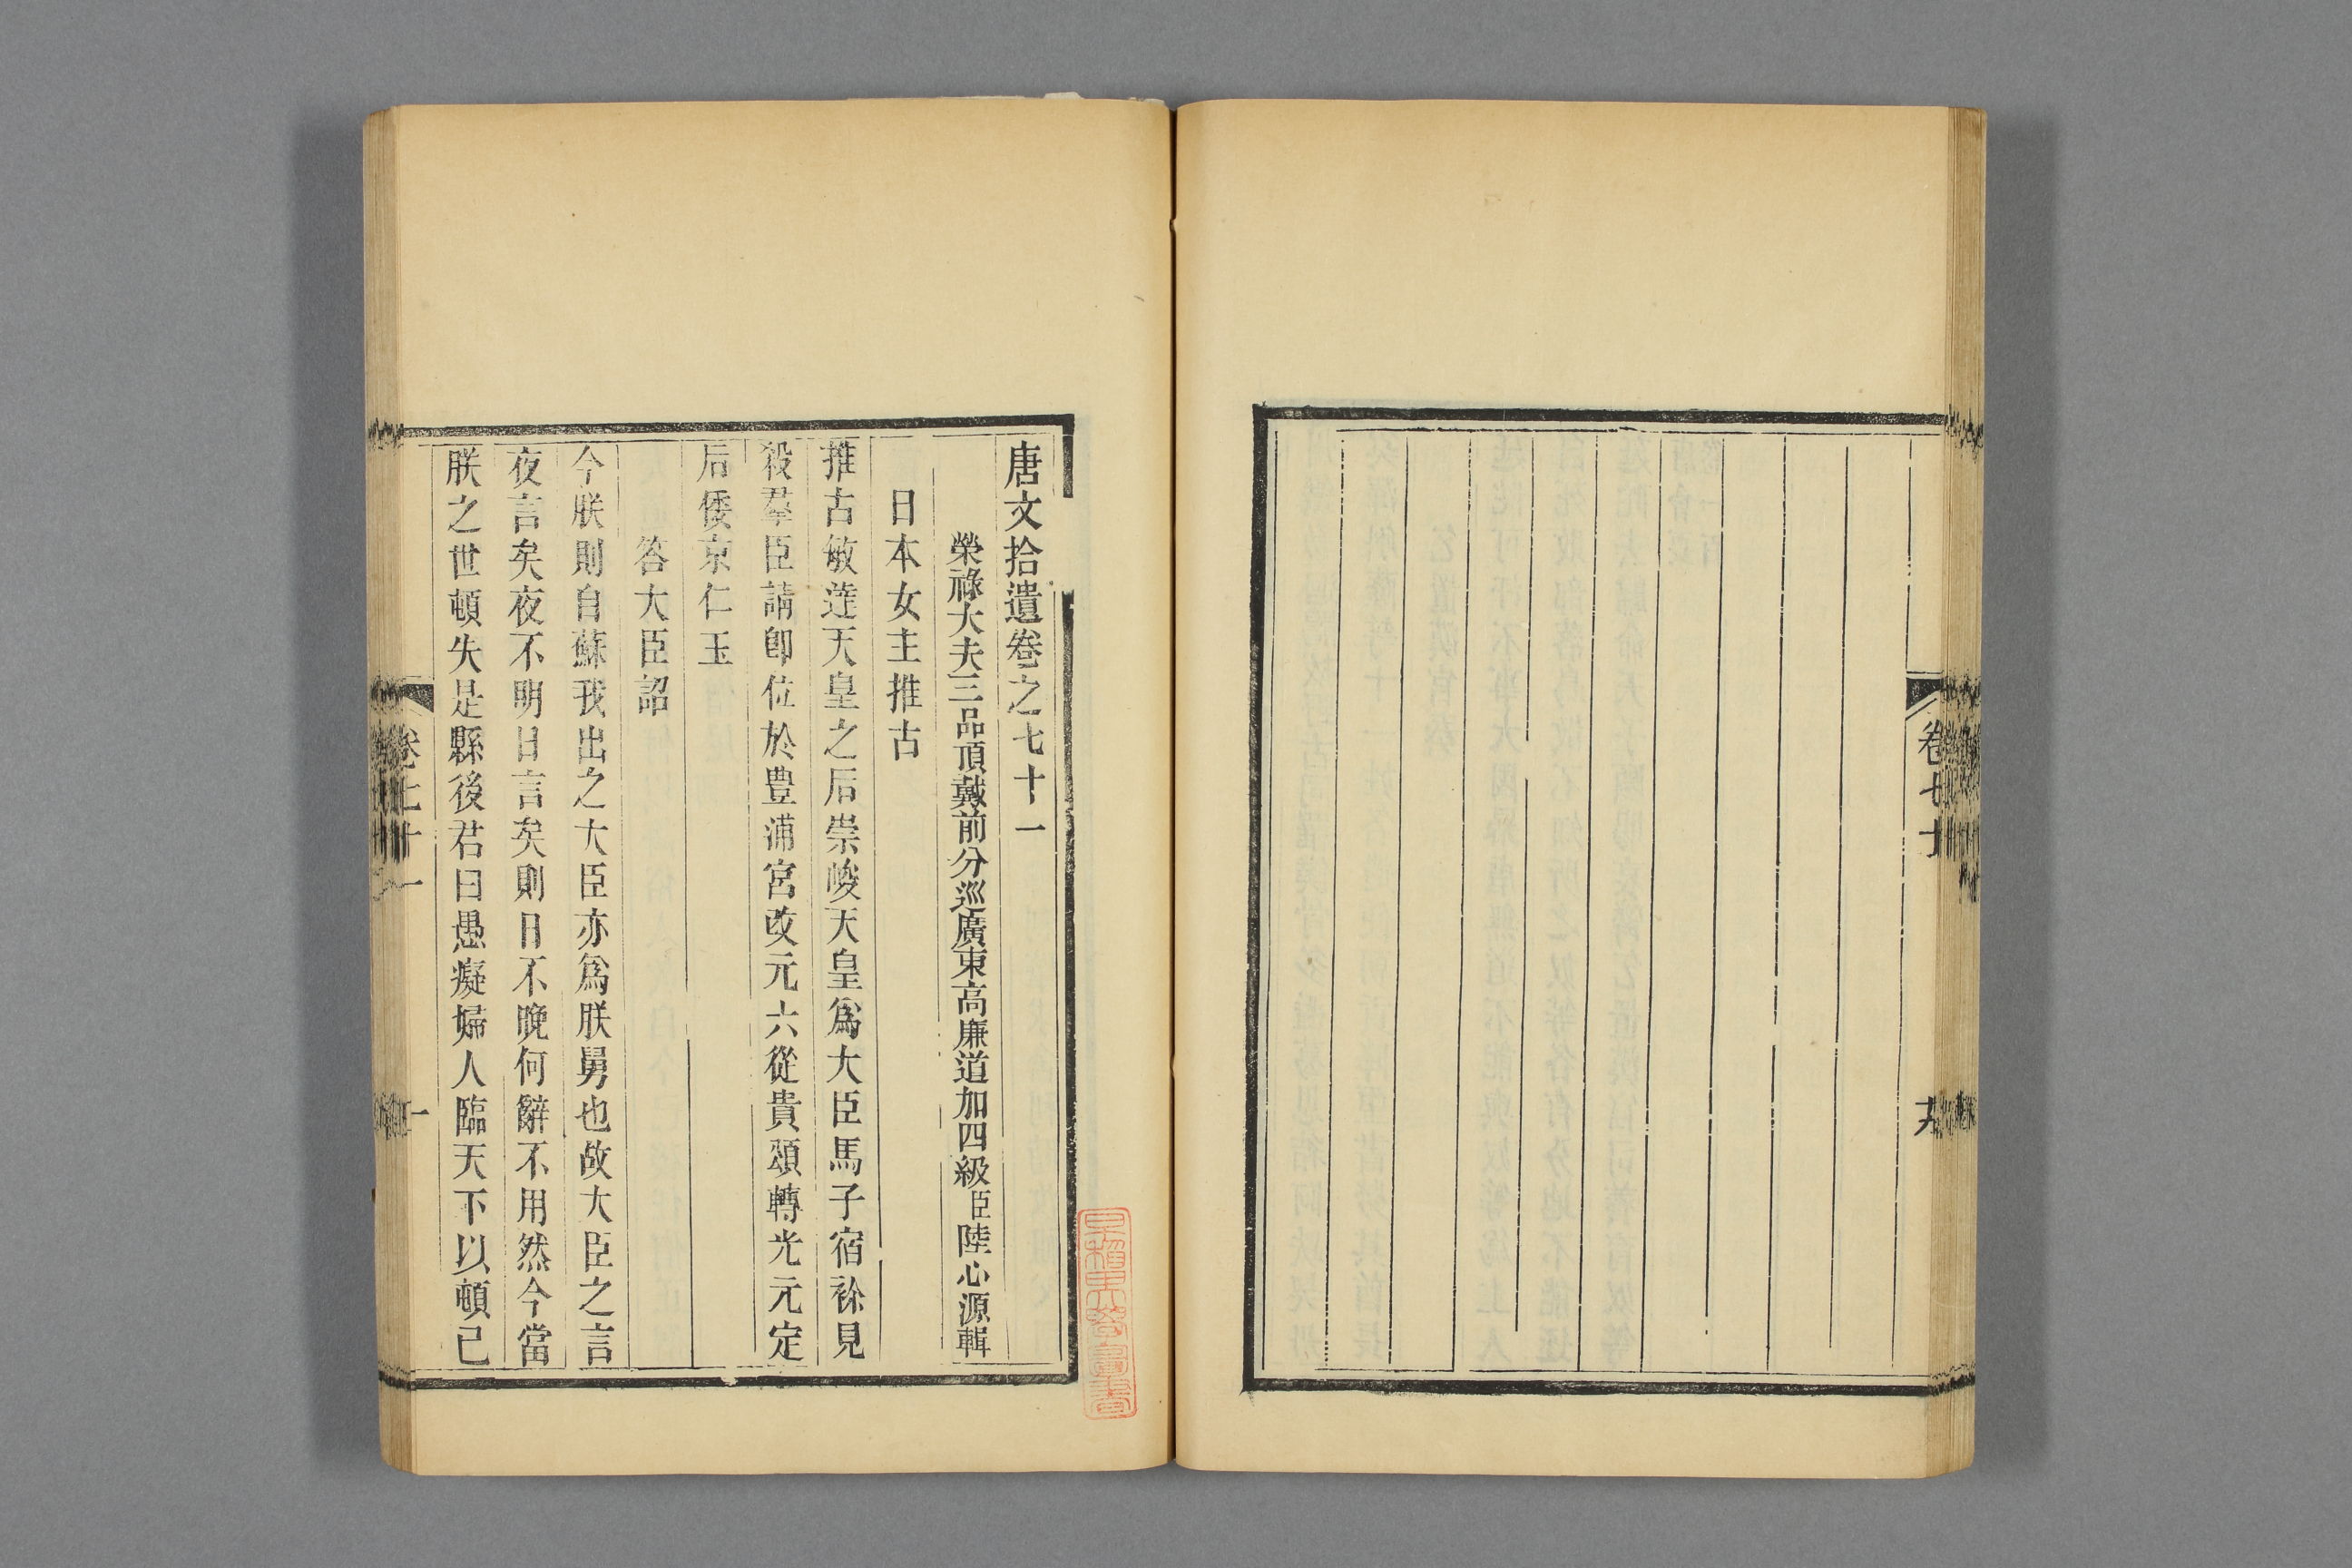 卷七十
唐文拾遺卷之七十一
榮祿大夫三品頂戴前分巡廣東高廉道加四級臣陸心源輯
日本女主推古
推古敏達天皇之后崇峻天皇爲大臣馬子宿祢見
殺羣臣請卽位於豊浦宮改元六從貴頌轉光元定
后倭京仁玉
答大臣詔
今朕則自蘇我出之大臣亦爲朕舅也故大臣之言
夜言矣夜不明日言矣則日不晚何辭不用然今當
朕之世頓失是縣後君曰愚癡婦人臨天下以頓己
卷七十一
一
早稲田大學圖書